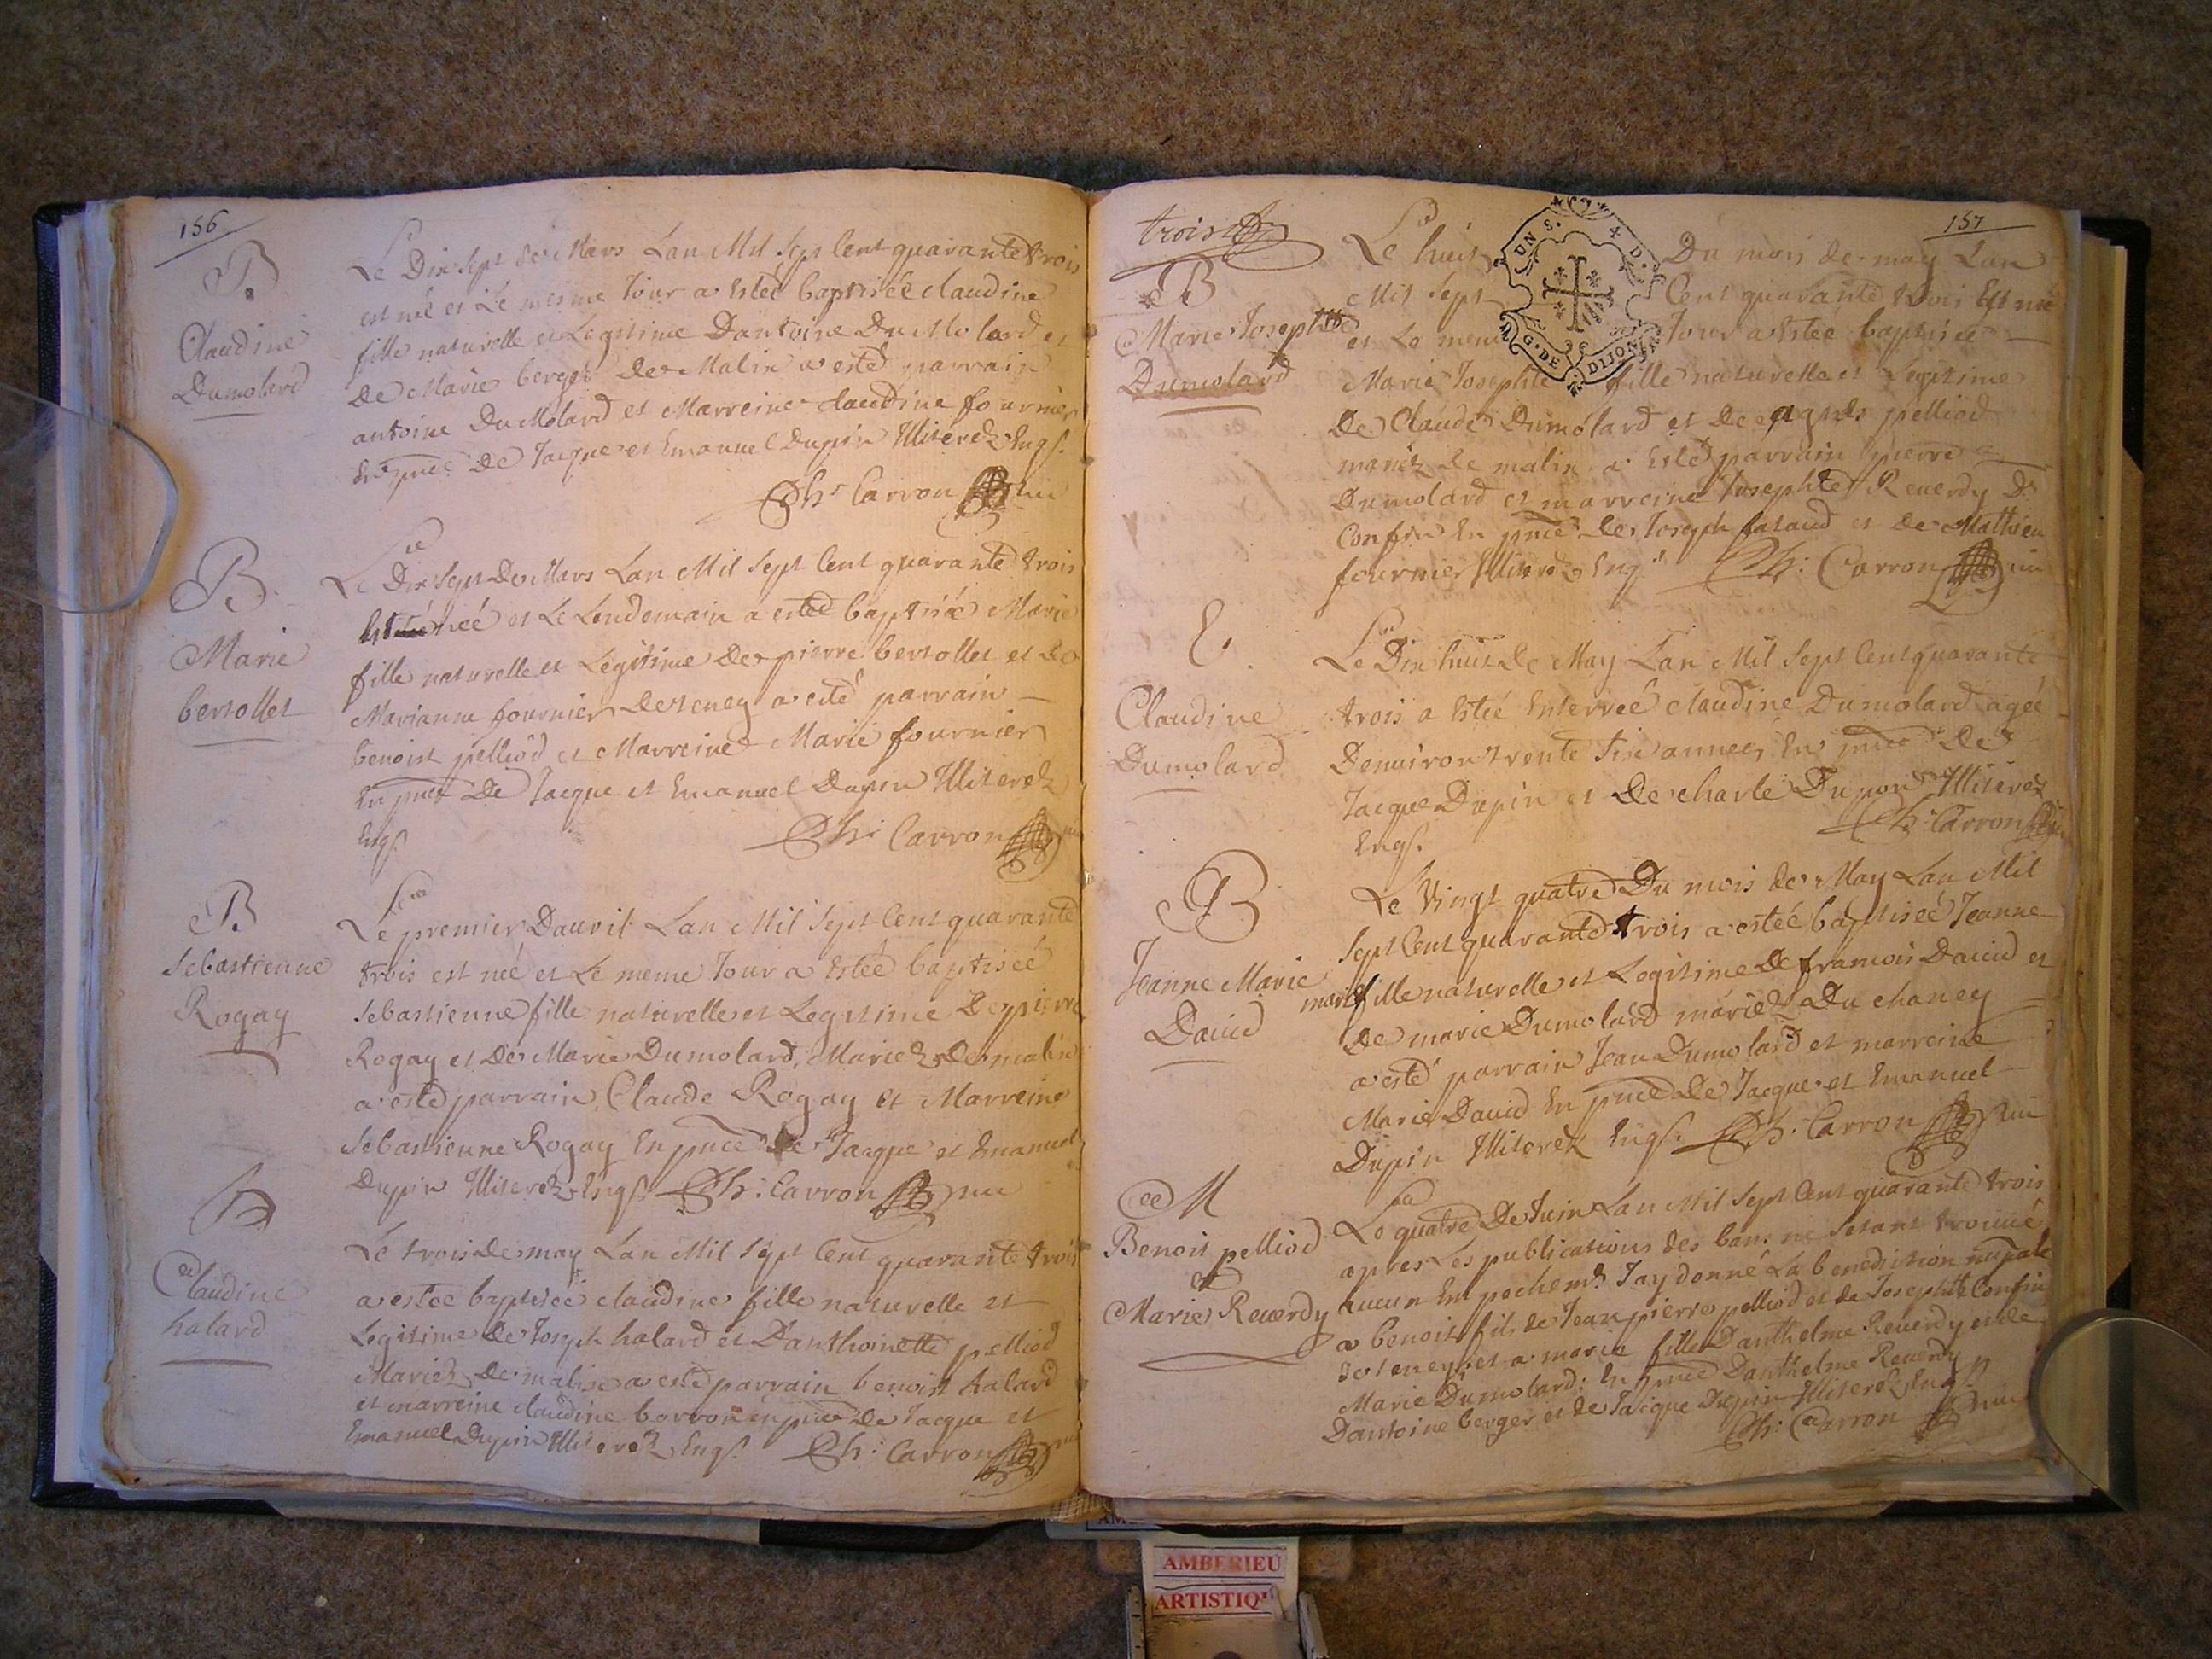 156
B
Claudine
Dumolard
Le Dix Sept de Mars Lan Mil Sept Cent quarante trois
est née et Le mesme Jour a Estéé baptiséé claudine
fille naturelle et Legitime Dantoine Dumolard et
De Marie berger De Malix a esté parrain
antoine DuMolard et Marreine claudine fournier
En pnce De Jacque et Emanuel Dupin Illiterez Engs.
Ch: Carron
B
Marie
bertollet
Le Dix Sept De Mars Lan Mil Sept Cent quarante trois
Est née et Le Lendemain a estéé baptiséé Marie
fille naturelle et Legitime De pierre bertollet et de
Marianne fournier de teney a esté parrain
benoist pelliod et Marreine Marie fournier
En pnce De Jacque et Emanuel Dupin Illiterez
Engs.
Ch: Carron
B
Sebastienne
Rogay
Le premier Dauril Lan Mil Sept Cent quarante
trois est néé et Le meme Jour a Estéé baptiséé
Sebastienne fille naturelle et Legitime De pierre
Rogay et De Marie Dumolard, Mariez De malix
a esté parrain Claude Rogay et Marreine
Sebastienne Rogay En pnce de Jacque et Emanuel
Dupin Illiterez Engs. Ch: Carron
B
Claudine
halard
Le trois de may Lan Mil Sept Cent quarante trois
a estéé baptiséé claudine fille naturelle et
Legitime de Joseph halard et Danthoinette pelliod
Mariez de malix a esté parrain benoist halard
et marreine claudine borron en pnce De Jacque et
Emanuel Dupin Illiterez Engs. Ch: Carron
157
trois
B
Marie Josephte
Dumolard
UN S. D.
G. DE DIJON
Le huit Du mois de may Lan
Mil Sept Cent quarante trois Est née
et Le meme Jour a Estéé baptiséé
Marie Josephte fille naturelle et Legitime
De Claude Dumolard et de agnes pelliod
mariez de malix a Esté parrain pierre
Dumolard et marreine Josephte Reuerdy De
Confin En pnce de Joseph falaud et de Mathieu
fournier Illiterez Engs. Ch: Carron
E
Claudine
Dumolard
Le Dix huit de May Lan Mil Sept Cent quarante
trois a Estéé Enterréé claudine Dumolard agéé
Denuiron trente Six années En pnce De
Jacque Dupin et De charle Dupon Illiterez
Engs.
Ch: Carron
B
Jeanne Marie
Dauid
Le Vingt quatre Du mois de May Lan Mil
Sept Cent quarante trois a estéé baptiséé Jeanne
marie fille naturelle et Legitime De francois Dauid et
de marie Dumolard mariez Du chaney
a esté parrain Jean Dumolard et marreine
Marie Dauid En pnce De Jacque et Emanuel
Dupin Illiterez Engs. Ch: Carron
M
Benoit pelliod
et
Marie Reuerdy
Le quatre De Juin Lan Mil Sept Cent quarante trois
apres Les publications des bans ne Setant trouué
aucun Enpechemt Jay donné La benediction nuptale
a benoit fils de Jean pierre pelliod et de Josephte Confin
de teney et a marie fille Danthelme Reuerdy et de
Marie Dumolard: En pnce Danthelme Reuerdy
Dantoine berger et de Jacque Dupin Illiterez Engs.
Ch: Carron
AMBERIEU
ARTISTIQ